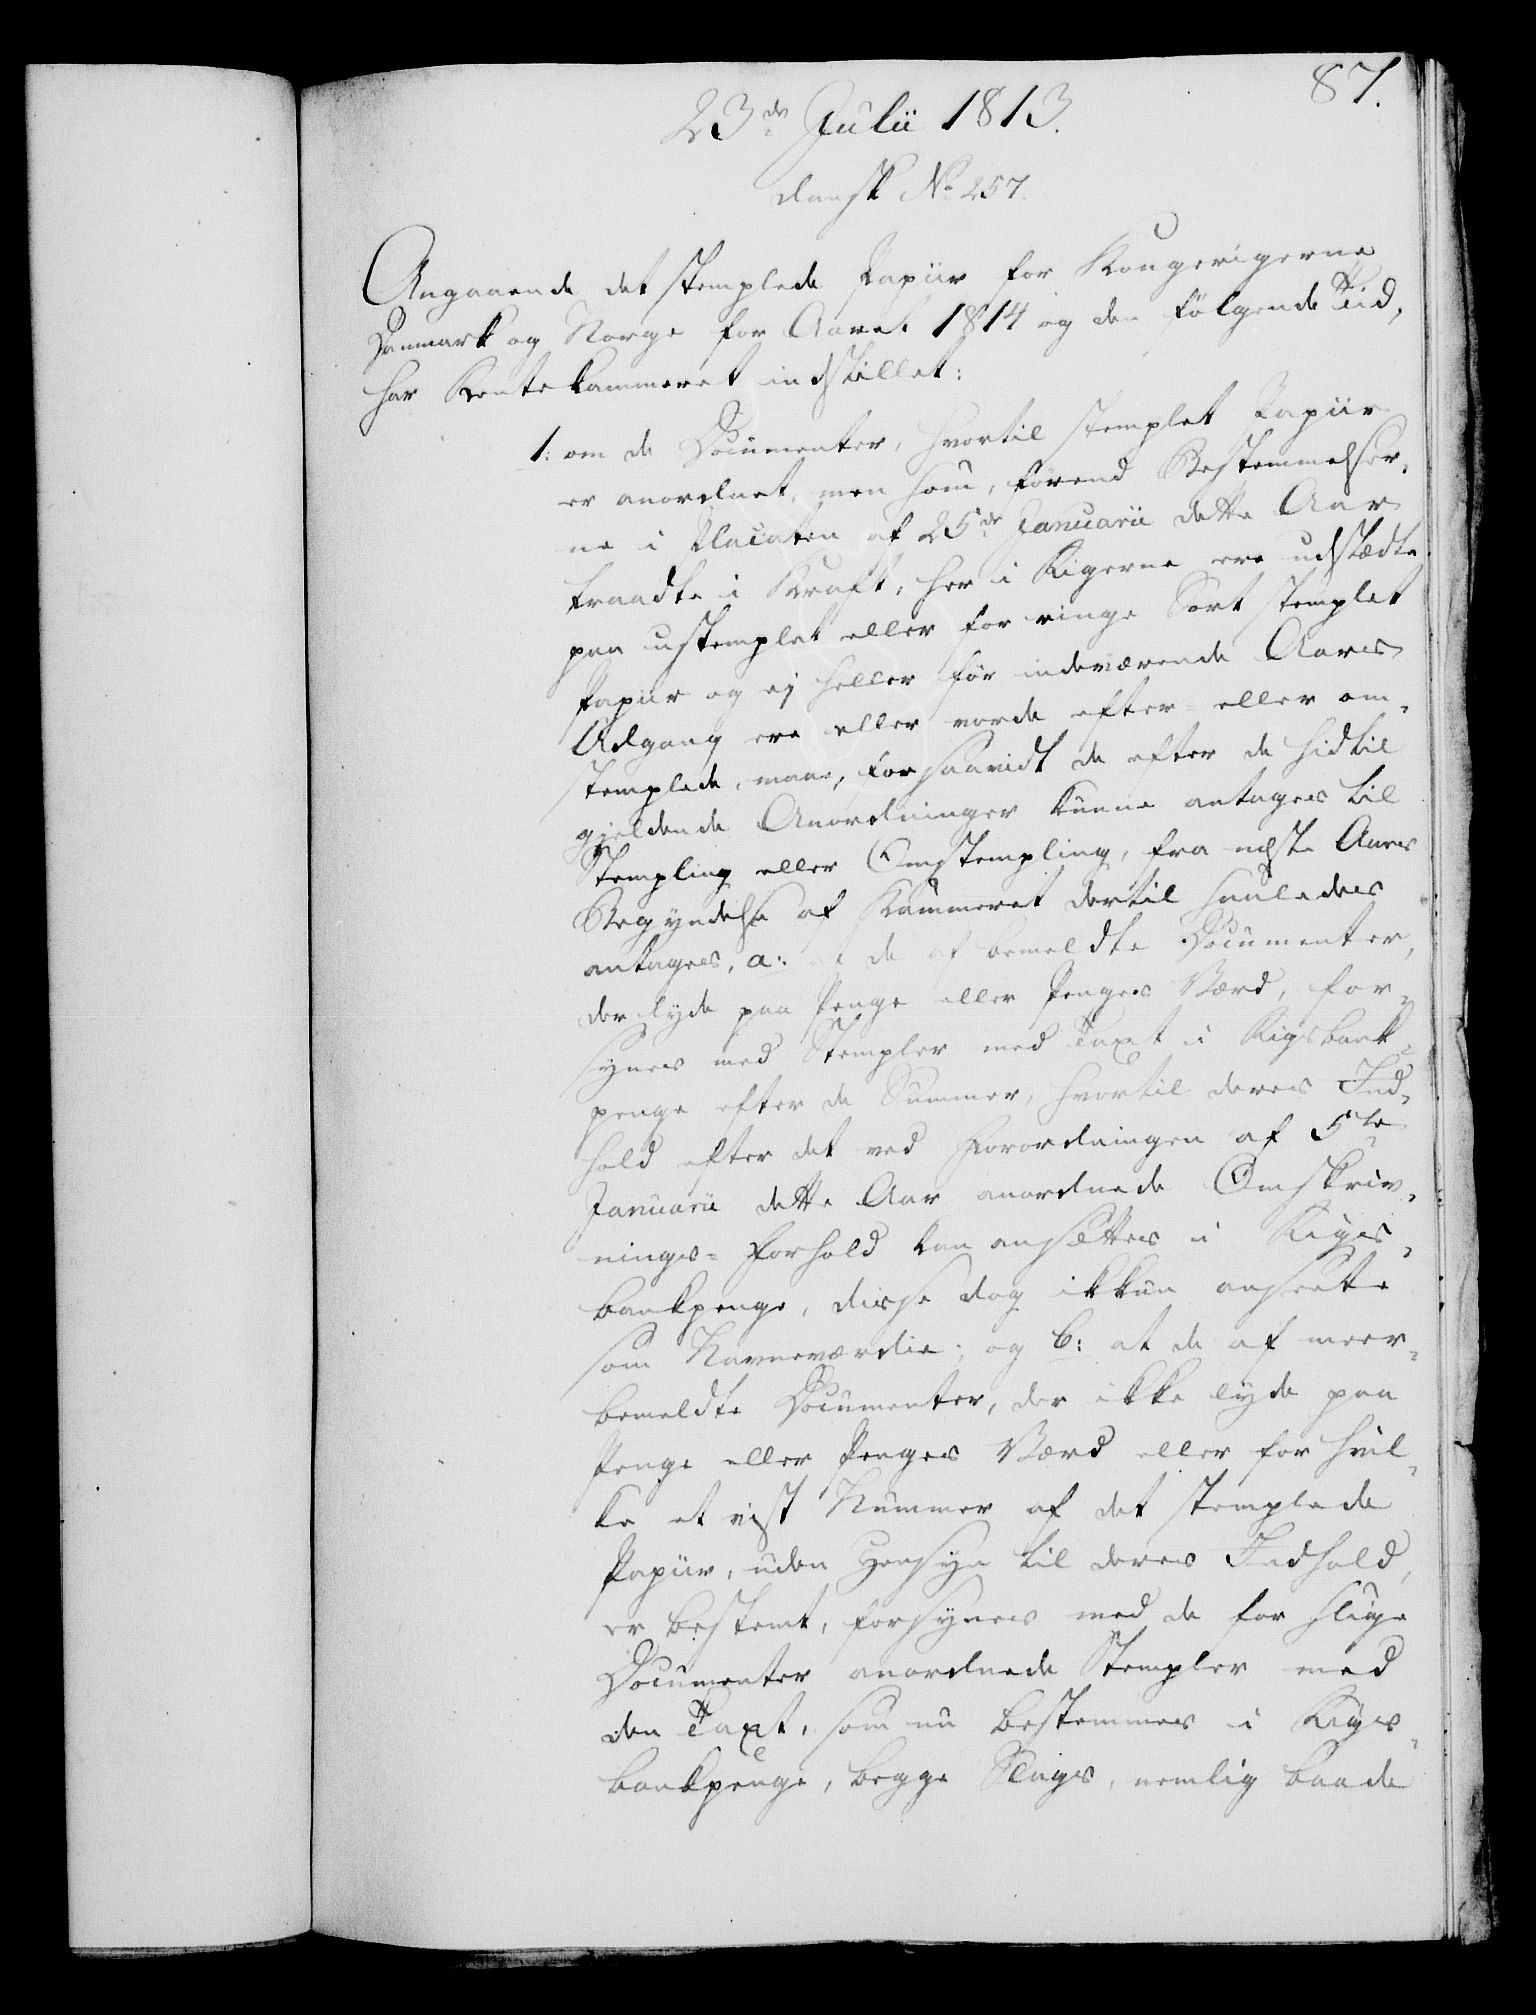 87.
23de Julii 1813.
dansk No 257.
Angaaende det stemplede Papiir for Kongerigerne
Danmark og Norge for Aaret 1814 og den følgende Tid,
har Rentekammeret indstillet:
1: om de Documenter, hvortil stemplet Papiir
er anordnet, men som, førend Bestemmelser,
ne i Placaten af 25de Januarii dette Aar
traadte i Kraft, her i Rigerne ere udstædte
paa ustemplet eller for ringe Sort stemplet
Papiir og ej heller før indeværende Aars
Udgang ere eller vorde efter- eller om,
stemplede, maae, forsaavidt de efter de hidtil
gjeldende Anordninger kunne antages til
Stempling eller Omstempling, fra næste Aars
Begyndelse af Kammeret dertil saaledes
antages, a: at de af bemeldte Documenter,
der lyde paa Penge eller Penges Værd, for,
synes med Stempler med Taxt i Rigsbank,
penge efter de Summer, hvortil deres Ind,
hold efter det ved Forordningen af 5te
Januarii dette Aar anordnede Omskriv,
nings-Forhold kan ansættes i Rigs,
bankpenge, disse dog ikkun ansete
som Navneværdie; og b: at de af meer,
bemeldte Documenter, der ikke lyde paa
Penge eller Penges Værd eller for hvil,
ke et vist Nummer af det stemplede
Papiir, uden Hensyn til deres Indhold,
er bestemt, forsynes med de for slige
Documenter anordnede Stempler med
den Taxt, som nu bestemmes i Rigs,
bankpenge, begge Slags, nemlig baade